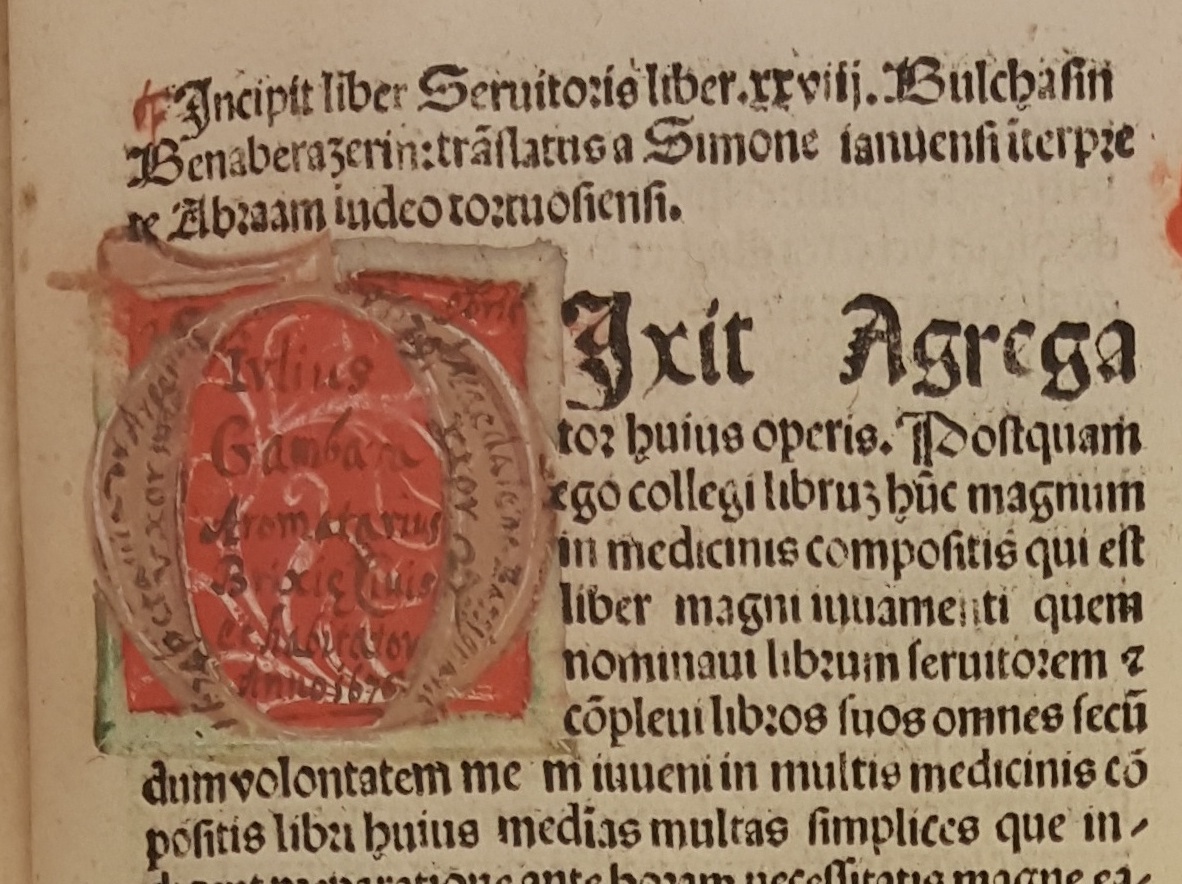 Incipit liber Seruitoris liber.xxviij. Bulchasin
Benaberazerin:trãslatus a Simone ianuensi ĩterpre
te Abraam iudeo tortuosiensi.
Ivlius
Gambara
Aromatarius
Brixię Ciuis
et habitator
Anno 1676
uxor
Magdalene
uxor
Ixit Agrega
tor huius operis. Postquam
ego collegi libruʒ hũc magnum
in medicinis compositis qui est
liber magni iuuamenti quem
nominaui librum seruitorem ⁊
cõpleui libros suos omnes secũ
dum volontatem me m iuueni in multis medicinis cõ
positis libri huius medĩas multas simplices que in-
preparatione ante horam necessitatis magne